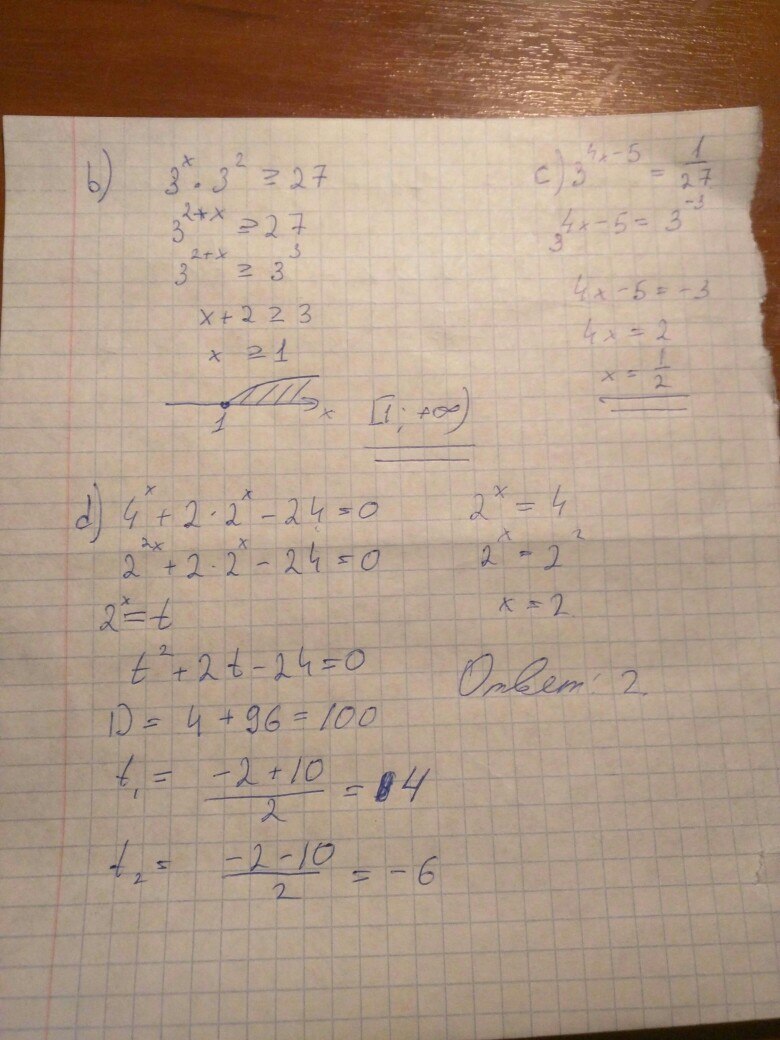 b) 3^x · 3^2 ≥ 27
3^{2+x} ≥ 27
3^{2+x} ≥ 3^3
x + 2 ≥ 3
x ≥ 1
1 x
[1; +∞)
c) 3^{4x-5} = 1/27
3^{4x-5} = 3^{-3}
4x - 5 = -3
4x = 2
x = 1/2
d) 4^x + 2 · 2^x - 24 = 0
2^{2x} + 2 · 2^x - 24 = 0
2^x = t
t^2 + 2t - 24 = 0
D = 4 + 96 = 100
t_1 = (-2 + 10)/2 = 4
t_2 = (-2 - 10)/2 = -6
2^x = 4
2^x = 2^2
x = 2
Ответ: 2